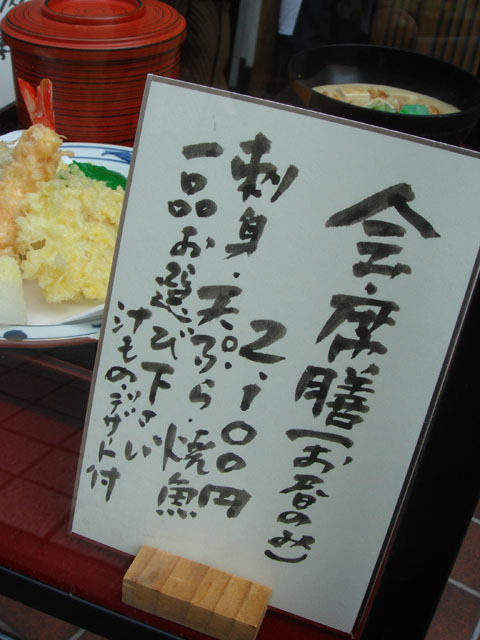 会席膳(お昼のみ)
2,100円
刺身・天ぷら・焼魚
一品お選び下さい
汁もの・デザート付